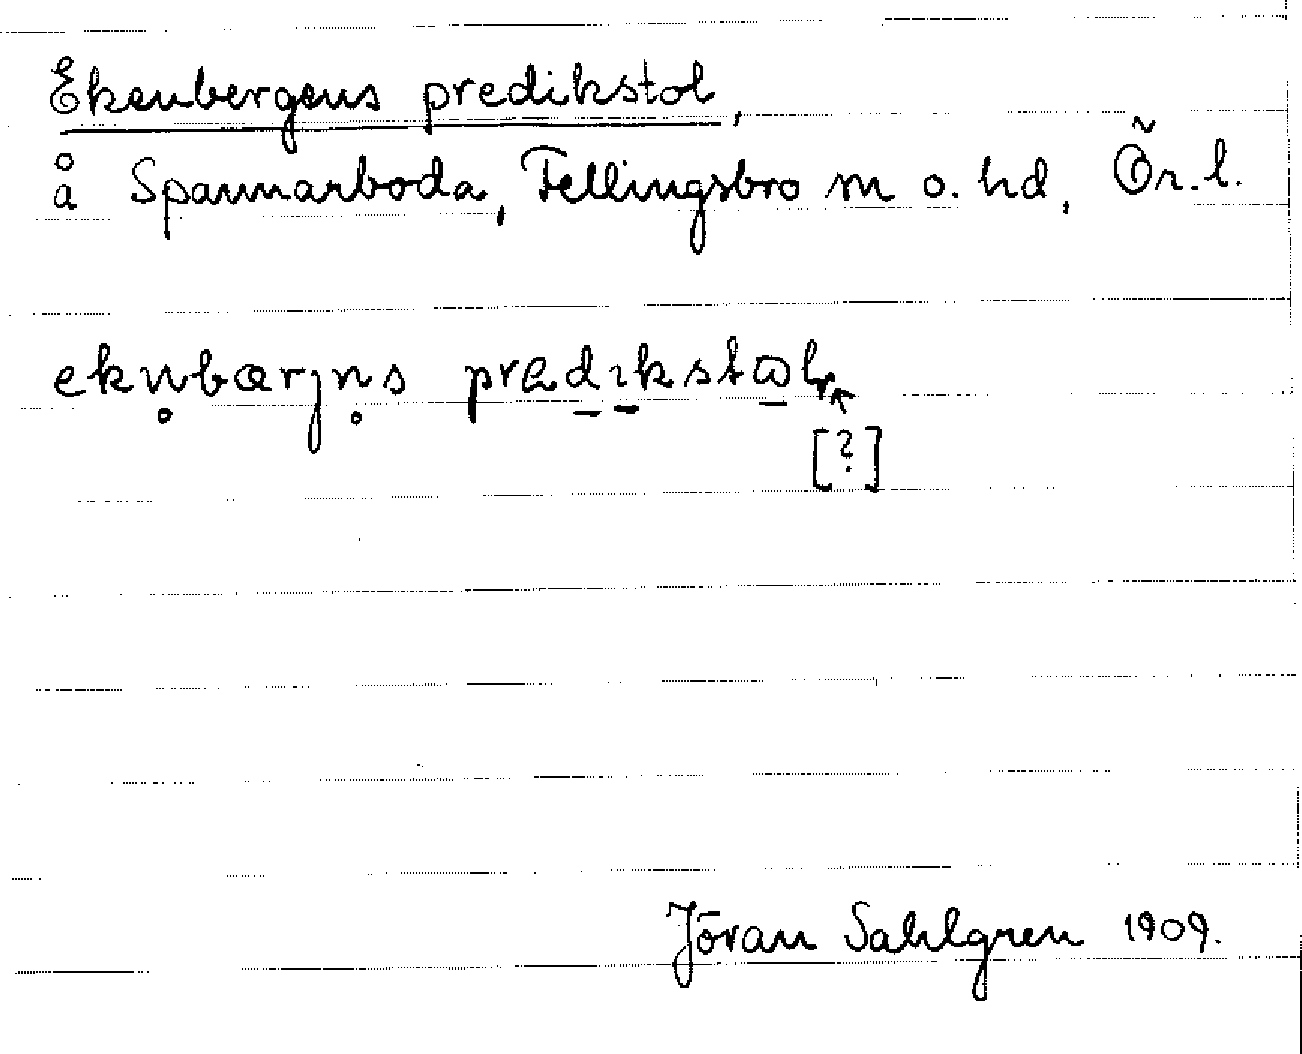 Ekenbergens predikstol,
å Spannarboda, Fellingsbro sn o. hd, Ör. l.
ekn̥bærjn̥s prædıkstωl
[?]
Jöran Sahlgren 1909.